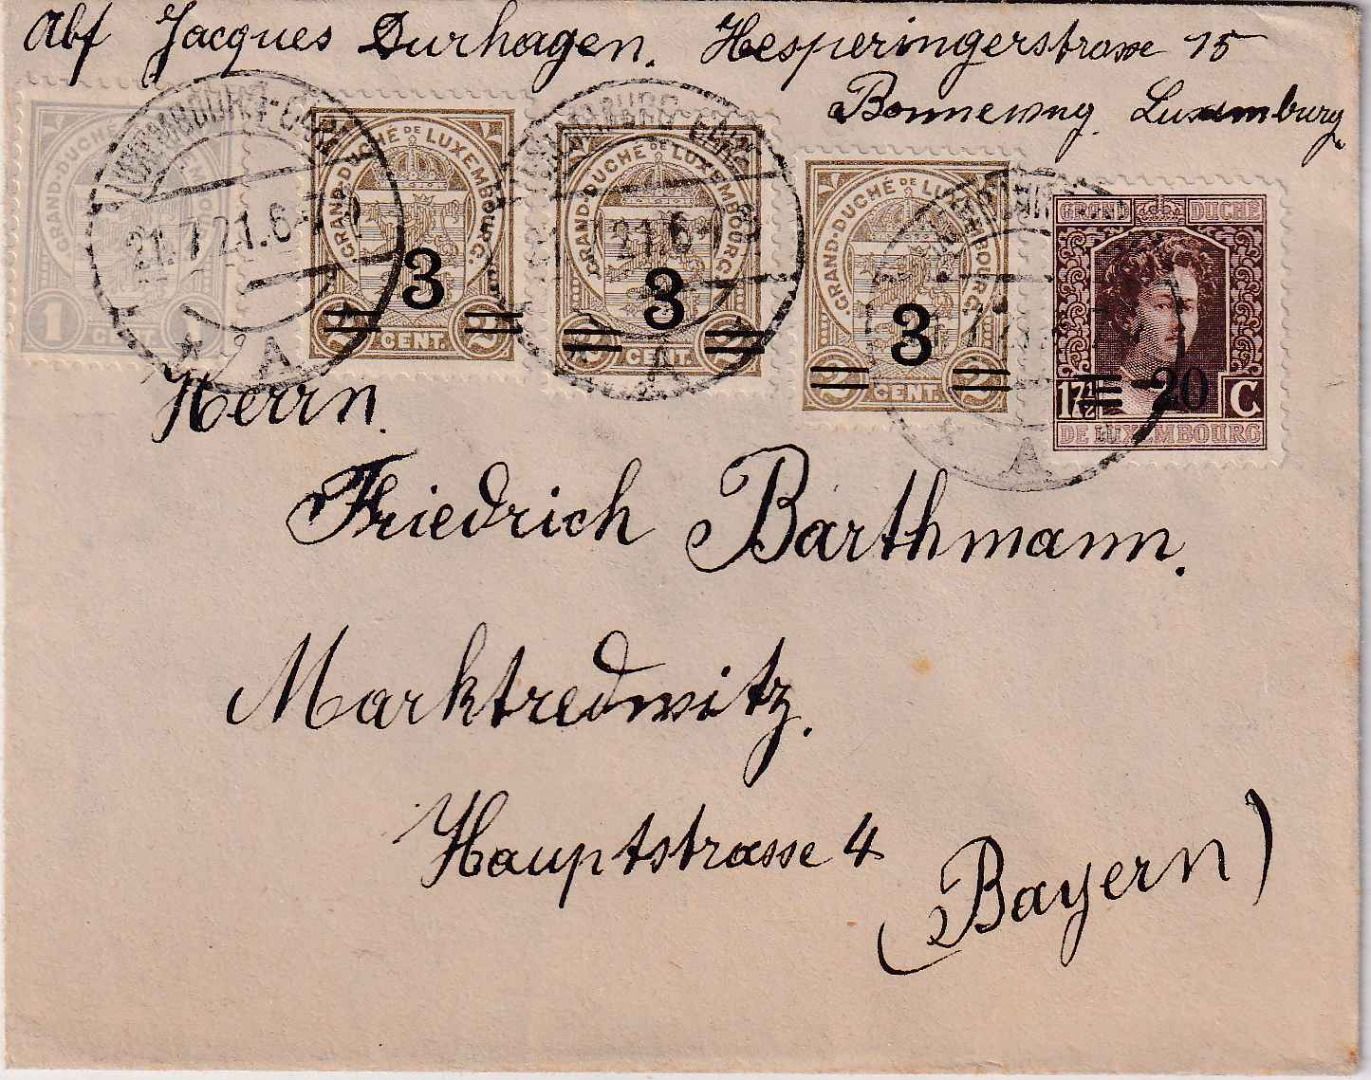 Abf Jacques Durhagen. Hesperingerstrasse 15
Bonneweg. Luxemburg
LUXEMBOURG-GARE
21.7.21.6-
A
GRAND-DUCHÉ DE LUXEMBOURG.
1 CENT. 1
GRAND-DUCHÉ DE LUXEMBOURG.
3
2 CENT. 2
LUXEMBOURG-GARE
21.6-
A
GRAND-DUCHÉ DE LUXEMBOURG.
3
2 CENT. 2
GRAND-DUCHÉ DE LUXEMBOURG.
3
2 CENT. 2
A
GRAND DUCHÉ
20
17½ C
DE LUXEMBOURG
Herrn.
Friedrich Barthmann.
Marktredwitz.
Hauptstrasse 4
(Bayern)